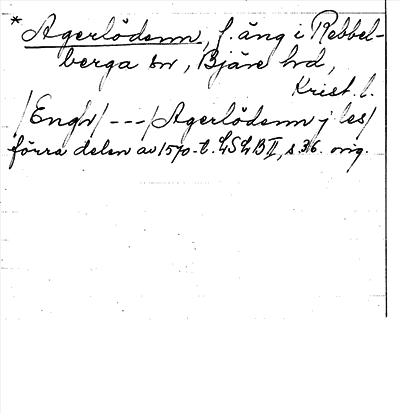 * Agerlödenn, f. äng i Rebbel-
berga sn, Bjäre hrd,
Krist. l.
/Engh/ - - - /Agerlödenn j les/
förra delen av 1570-t. LSLB II, s. 36. orig.